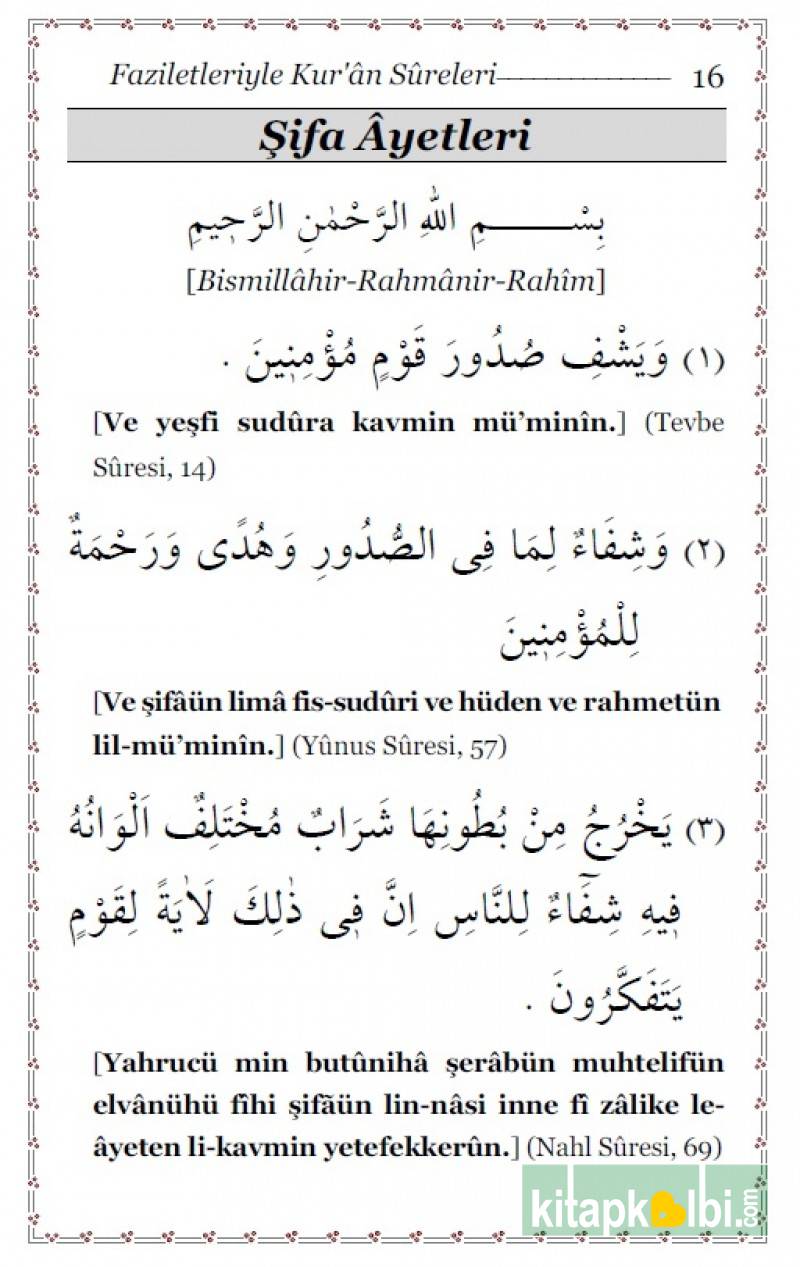 Faziletleriyle Kur'ân Sûreleri 16
Şifa Âyetleri
بِسْـــــــمِ اللهِ الرَّحْمٰنِ الرَّحٖيمِ
[Bismillâhir-Rahmânir-Rahîm]
(١) وَيَشْفِ صُدُورَ قَوْمٍ مُؤْمِنٖينَ .
[Ve yeşfi sudûra kavmin mü’minîn.] (Tevbe
Sûresi, 14)
(٢) وَشِفَاءٌ لِمَا فِى الصُّدُورِ وَهُدًى وَرَحْمَةٌ
لِلْمُؤْمِنٖينَ
[Ve şifâün limâ fis-sudûri ve hüden ve rahmetün
lil-mü’minîn.] (Yûnus Sûresi, 57)
(٣) يَخْرُجُ مِنْ بُطُونِهَا شَرَابٌ مُخْتَلِفٌ اَلْوَانُهُ
فٖيهِ شِفَٓاءٌ لِلنَّاسِ اِنَّ فٖى ذٰلِكَ لَاٰيَةً لِقَوْمٍ
يَتَفَكَّرُونَ .
[Yahrucü min butûnihâ şerâbün muhtelifün
elvânühü fîhi şifãün lin-nâsi inne fî zâlike le-
âyeten li-kavmin yetefekkerûn.] (Nahl Sûresi, 69)
kitapkalbi.com